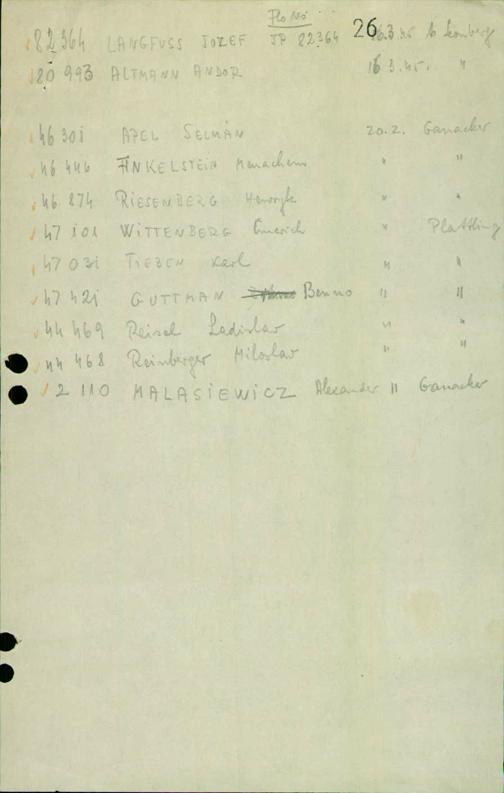 Flo No
26
82 364 LANGFUSS JOZEF JP 82364 16.3.45 to Leonberg
80 993 ALTMANN ANDOR 16.3.45. "
46 301 APEL SELMAN 20.2. Ganacker
46 446 FINKELSTEIN Menachem " "
46 874 RIESENBERG Henryk " "
47 101 WITTENBERG Emerich " Plattling
47 031 TIEBEN Karl " "
47 421 GUTTMAN Benno " "
44 469 Reisel Ladislav " "
44 468 Reinberger Miloslav " "
2 110 MALASIEWICZ Alexander " Ganacker